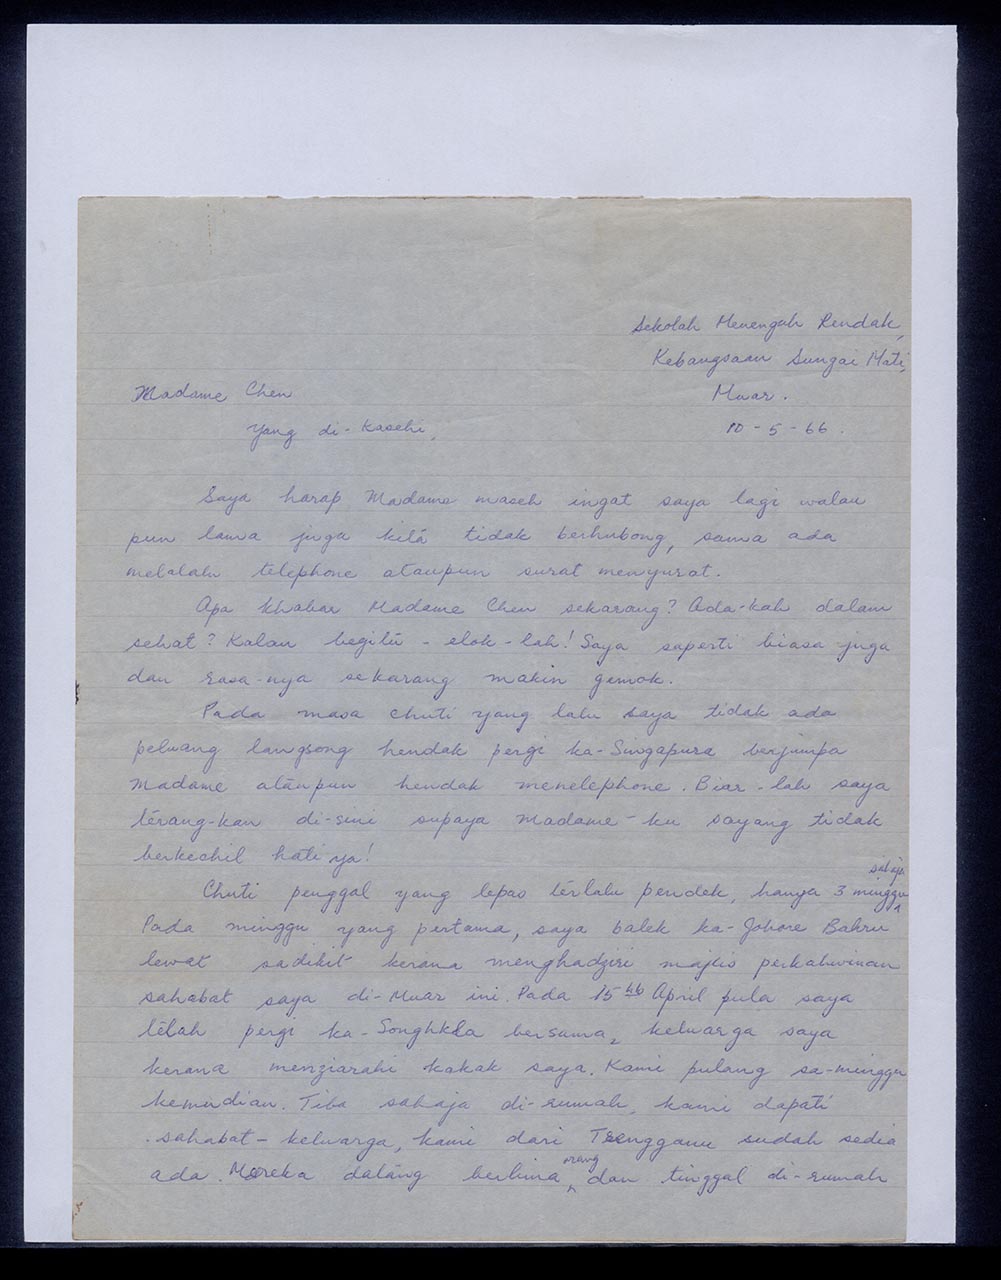 Sekolah Menengah Rendah,
Kebangsaan Sungai Mati,
Madame Chen
Muar.
yang di-kasehi,
10-5-66.
Saya harap Madame maseh ingat saya lagi walau
pun lama juga kita tidak berhubong, sama ada
melalalu telephone ataupun surat menyurat.
Apa khabar Madame Chen sekarang? Ada-kah dalam
sehat? Kalau begitu - elok-lah! Saya saperti biasa juga
dan rasa-nya sekarang makin gemok.
Pada masa chuti yang lalu saya tidak ada
peluang langsong hendak pergi ka-Singapura berjumpa
Madame ataupun hendak menelephone. Biar-lah saya
terang-kan di-sini supaya Madame-ku sayang tidak
berkechil hati ya!
Chuti penggal yang lepas terlalu pendek, hanya 3 minggu sahaja
Pada minggu yang pertama, saya balek ka-Johore Bahru
lewat sadikit kerana menghadziri majlis perkahwinan
sahabat saya di-Muar ini. Pada 15th April pula saya
telah pergi ka-Songhkla bersama2 keluarga saya
kerana menziarahi kakak saya. Kami pulang sa-minggu
kemudian. Tiba sahaja di-rumah, kami dapati
sahabat-keluarga, kami dari Trengganu sudah sedia
ada. Mereka datang berlima orang dan tinggal di-rumah